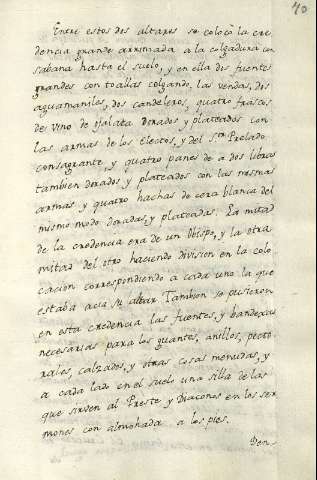 40
Entre estos dos altares se colocò la cre
dencia grande arrimada a la colgadura con
sabana hasta el suelo, y en ella dos fuentes
grandes con toallas colgando, las vendas, dos
aguamaniles, dos candeleros, quatro frascos
de vino de ojalata dorados y plateados con
las armas de los Electos, y del Sor Prelado
consagrante, y quatro panes de a dos libras
tambien dorados, y plateados con las mismas
armas, y quatro hachas de cera blanca del
mismo modo doradas, y plateadas. La mitad
de la credencia era de un Obispo, y la otra
mitad del otro haciendo division en la colo
cacion correspondiendo a cada uno la que
estaba acia su altar. Tambien se pusieron
en esta credencia las fuentes, y bandexas
necesarias para los guantes, anillos, pecto
rales, calzados, y otras cosas menudas, y
a cada lado en el suelo una silla de las
que sirven al Preste y Diaconos en los ser
mones con almohada a los pies.
Den-